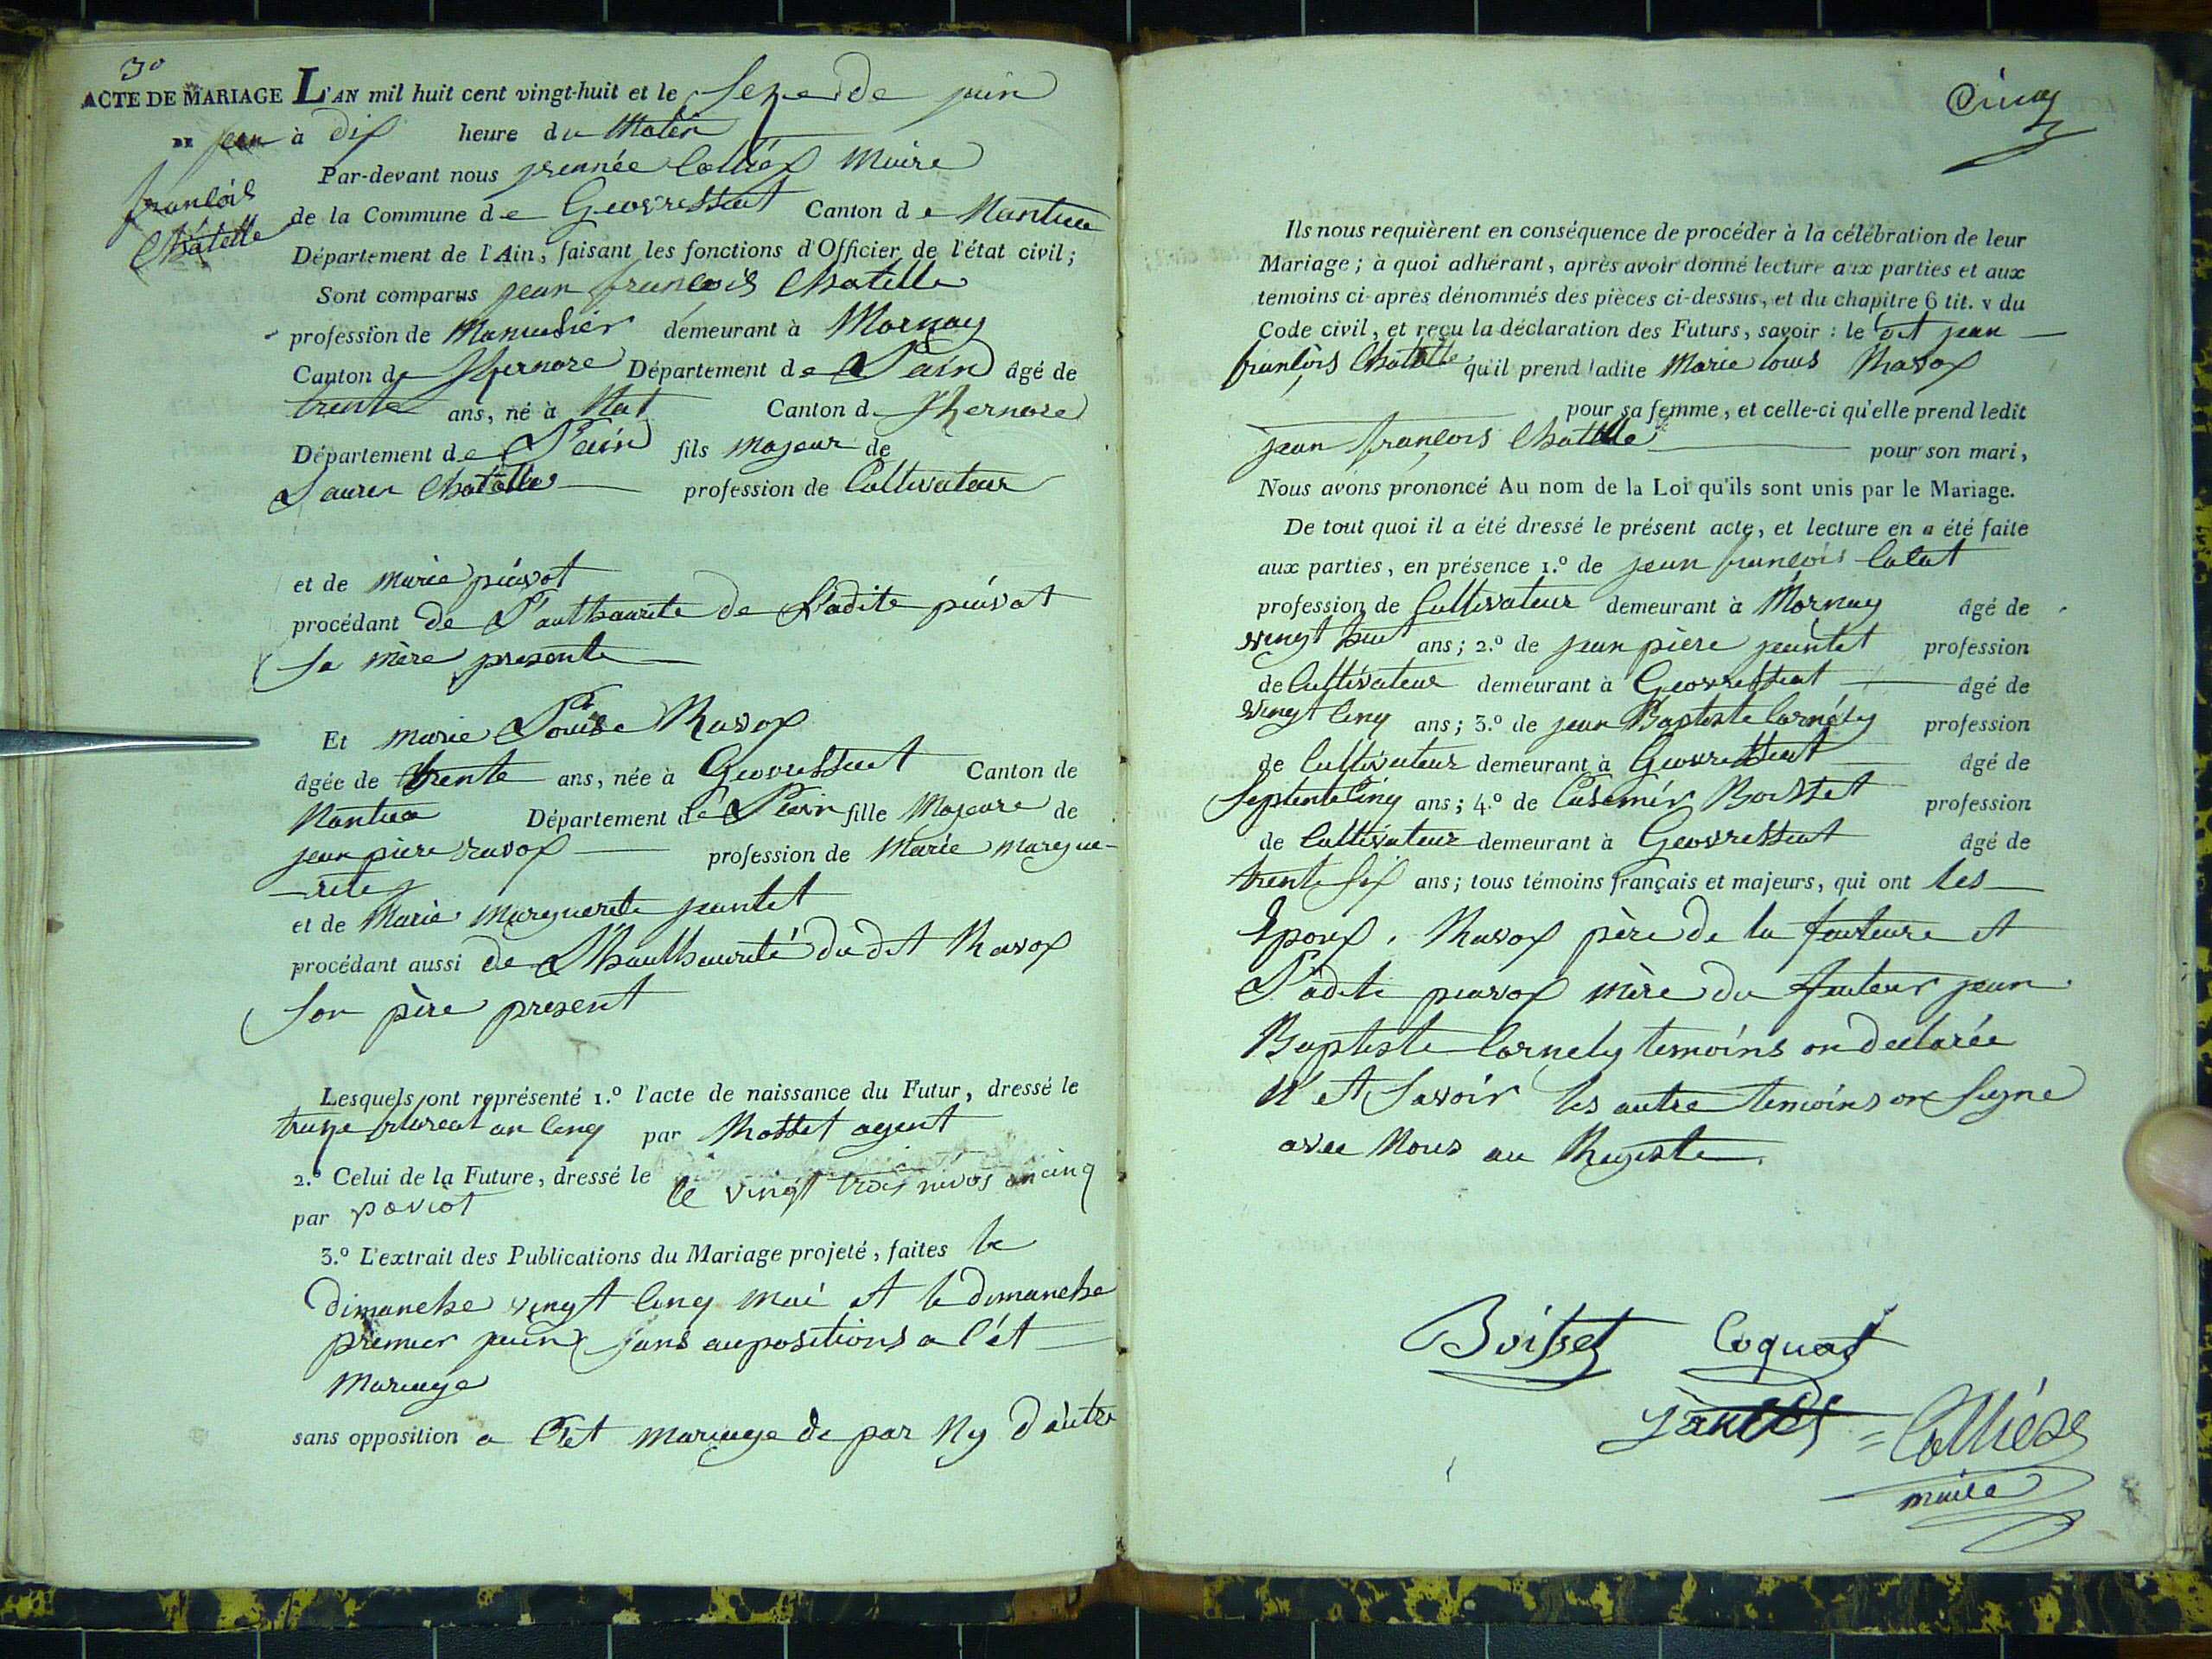 3o
ACTE DE MARIAGE L'AN mil huit cent vingt-huit et le seze de juin
DE jean à dix heure du Matin
françois
Chatelle
Par-devant nous Maire
de la Commune de Geovressiat Canton de Nantua
Département de l'Ain, faisant les fonctions d'Officier de l'état civil;
Sont comparus jean françois Chatelle
profession de Menusier demeurant à Mornay
Canton de Département de L'ain âgé de
trente ans, né à Canton d
Département de L'ain fils majeur de
Chatelle profession de Cultivateur
et de Marie piuvot
procédant de L'authaurite de Ladite piuvat
sa mère presente
Et marie Louise Ravox
âgée de trente ans, née à Geovressiat Canton de
Nantua Département de L'ain fille Majeure de
jean piere ravox profession de Marie margue-
rite
et de Marie Marguerite jantet
procédant aussi de Lhauthaurité du dit Ravox
son père present
Lesquels ont représenté 1.º l'acte de naissance du Futur, dressé le
treize floreal an cinq par Rosset agent
2.º Celui de la Future, dressé le le vingt trois nivos an cinq
par paviot
3.º L'extrait des Publications du Mariage projeté, faites le
Dimanche vingt cinq mai et le dimanche
premier juin sans aupositions a c'et
Mariage
sans opposition a C'et mariage de par Ny D'autre
Cinq
Ils nous requièrent en conséquence de procéder à la célébration de leur
Mariage; à quoi adhérant, après avoir donné lecture aux parties et aux
temoins ci-après dénommés des pièces ci-dessus, et du chapitre 6 tit. v du
Code civil, et reçu la déclaration des Futurs, savoir: le dit jean
françois Chatelle qu'il prend ladite Marie louis Ravox
pour sa femme, et celle-ci qu'elle prend ledit
jean françois Chatelle pour son mari,
Nous avons prononcé Au nom de la Loi qu'ils sont unis par le Mariage.
De tout quoi il a été dressé le présent acte, et lecture en a été faite
aux parties, en présence 1.º de jean françois
profession de Cultivateur demeurant à Mornay âgé de
vingt huit ans; 2.º de jean piere jeantet profession
de Cultivateur demeurant à Geovressiat âgé de
vingt cinq ans; 3.º de jean Baptiste Cornély profession
de Cultivateur demeurant à Geovressiat âgé de
septente cinq ans; 4.º de Casemir Boisset profession
de Cultivateur demeurant à Geovressiat âgé de
trente six ans; tous témoins français et majeurs, qui ont les
Epoux, Ravox père de la fauteure et
L'adite piuvox mère du fauteur jean
Baptiste Cornely temoins on declarée
N'et savoir les autre temoins on signe
avec Nous au Registe.
Boisset Coquat
Janttet = Colliéx
maire